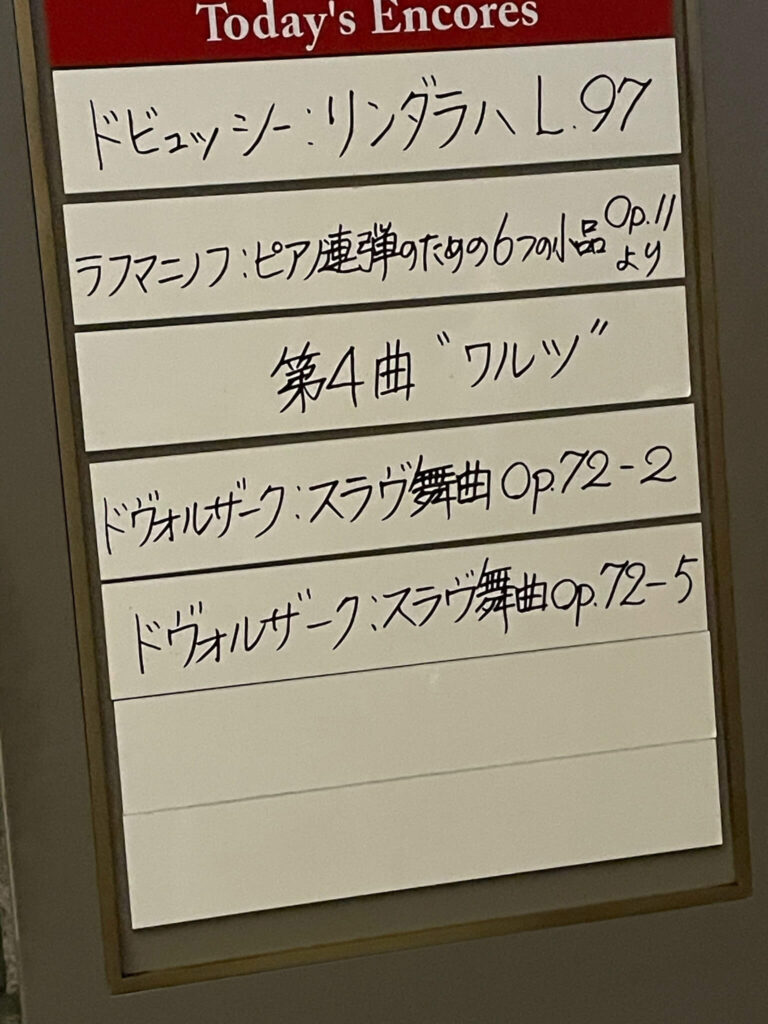 Today's Encores
ドビュッシー:リンダラハ L.97
ラフマニノフ:ピアノ連弾のための6つの小品 Op.11より
第4曲 "ワルツ"
ドヴォルザーク:スラヴ舞曲 Op.72-2
ドヴォルザーク:スラヴ舞曲 Op.72-5